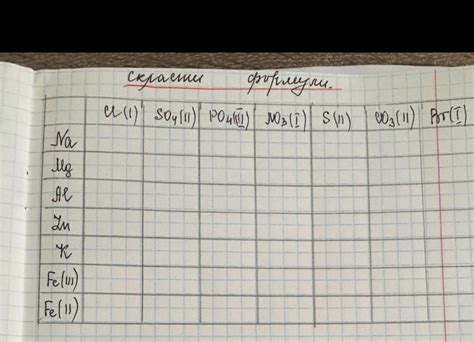 Скласти формули.
Cl(I) SO₄(II) PO₄(III) NO₃(I) S(II) CO₃(II) Br(I)
Na
Mg
Al
Zn
K
Fe(III)
Fe(II)